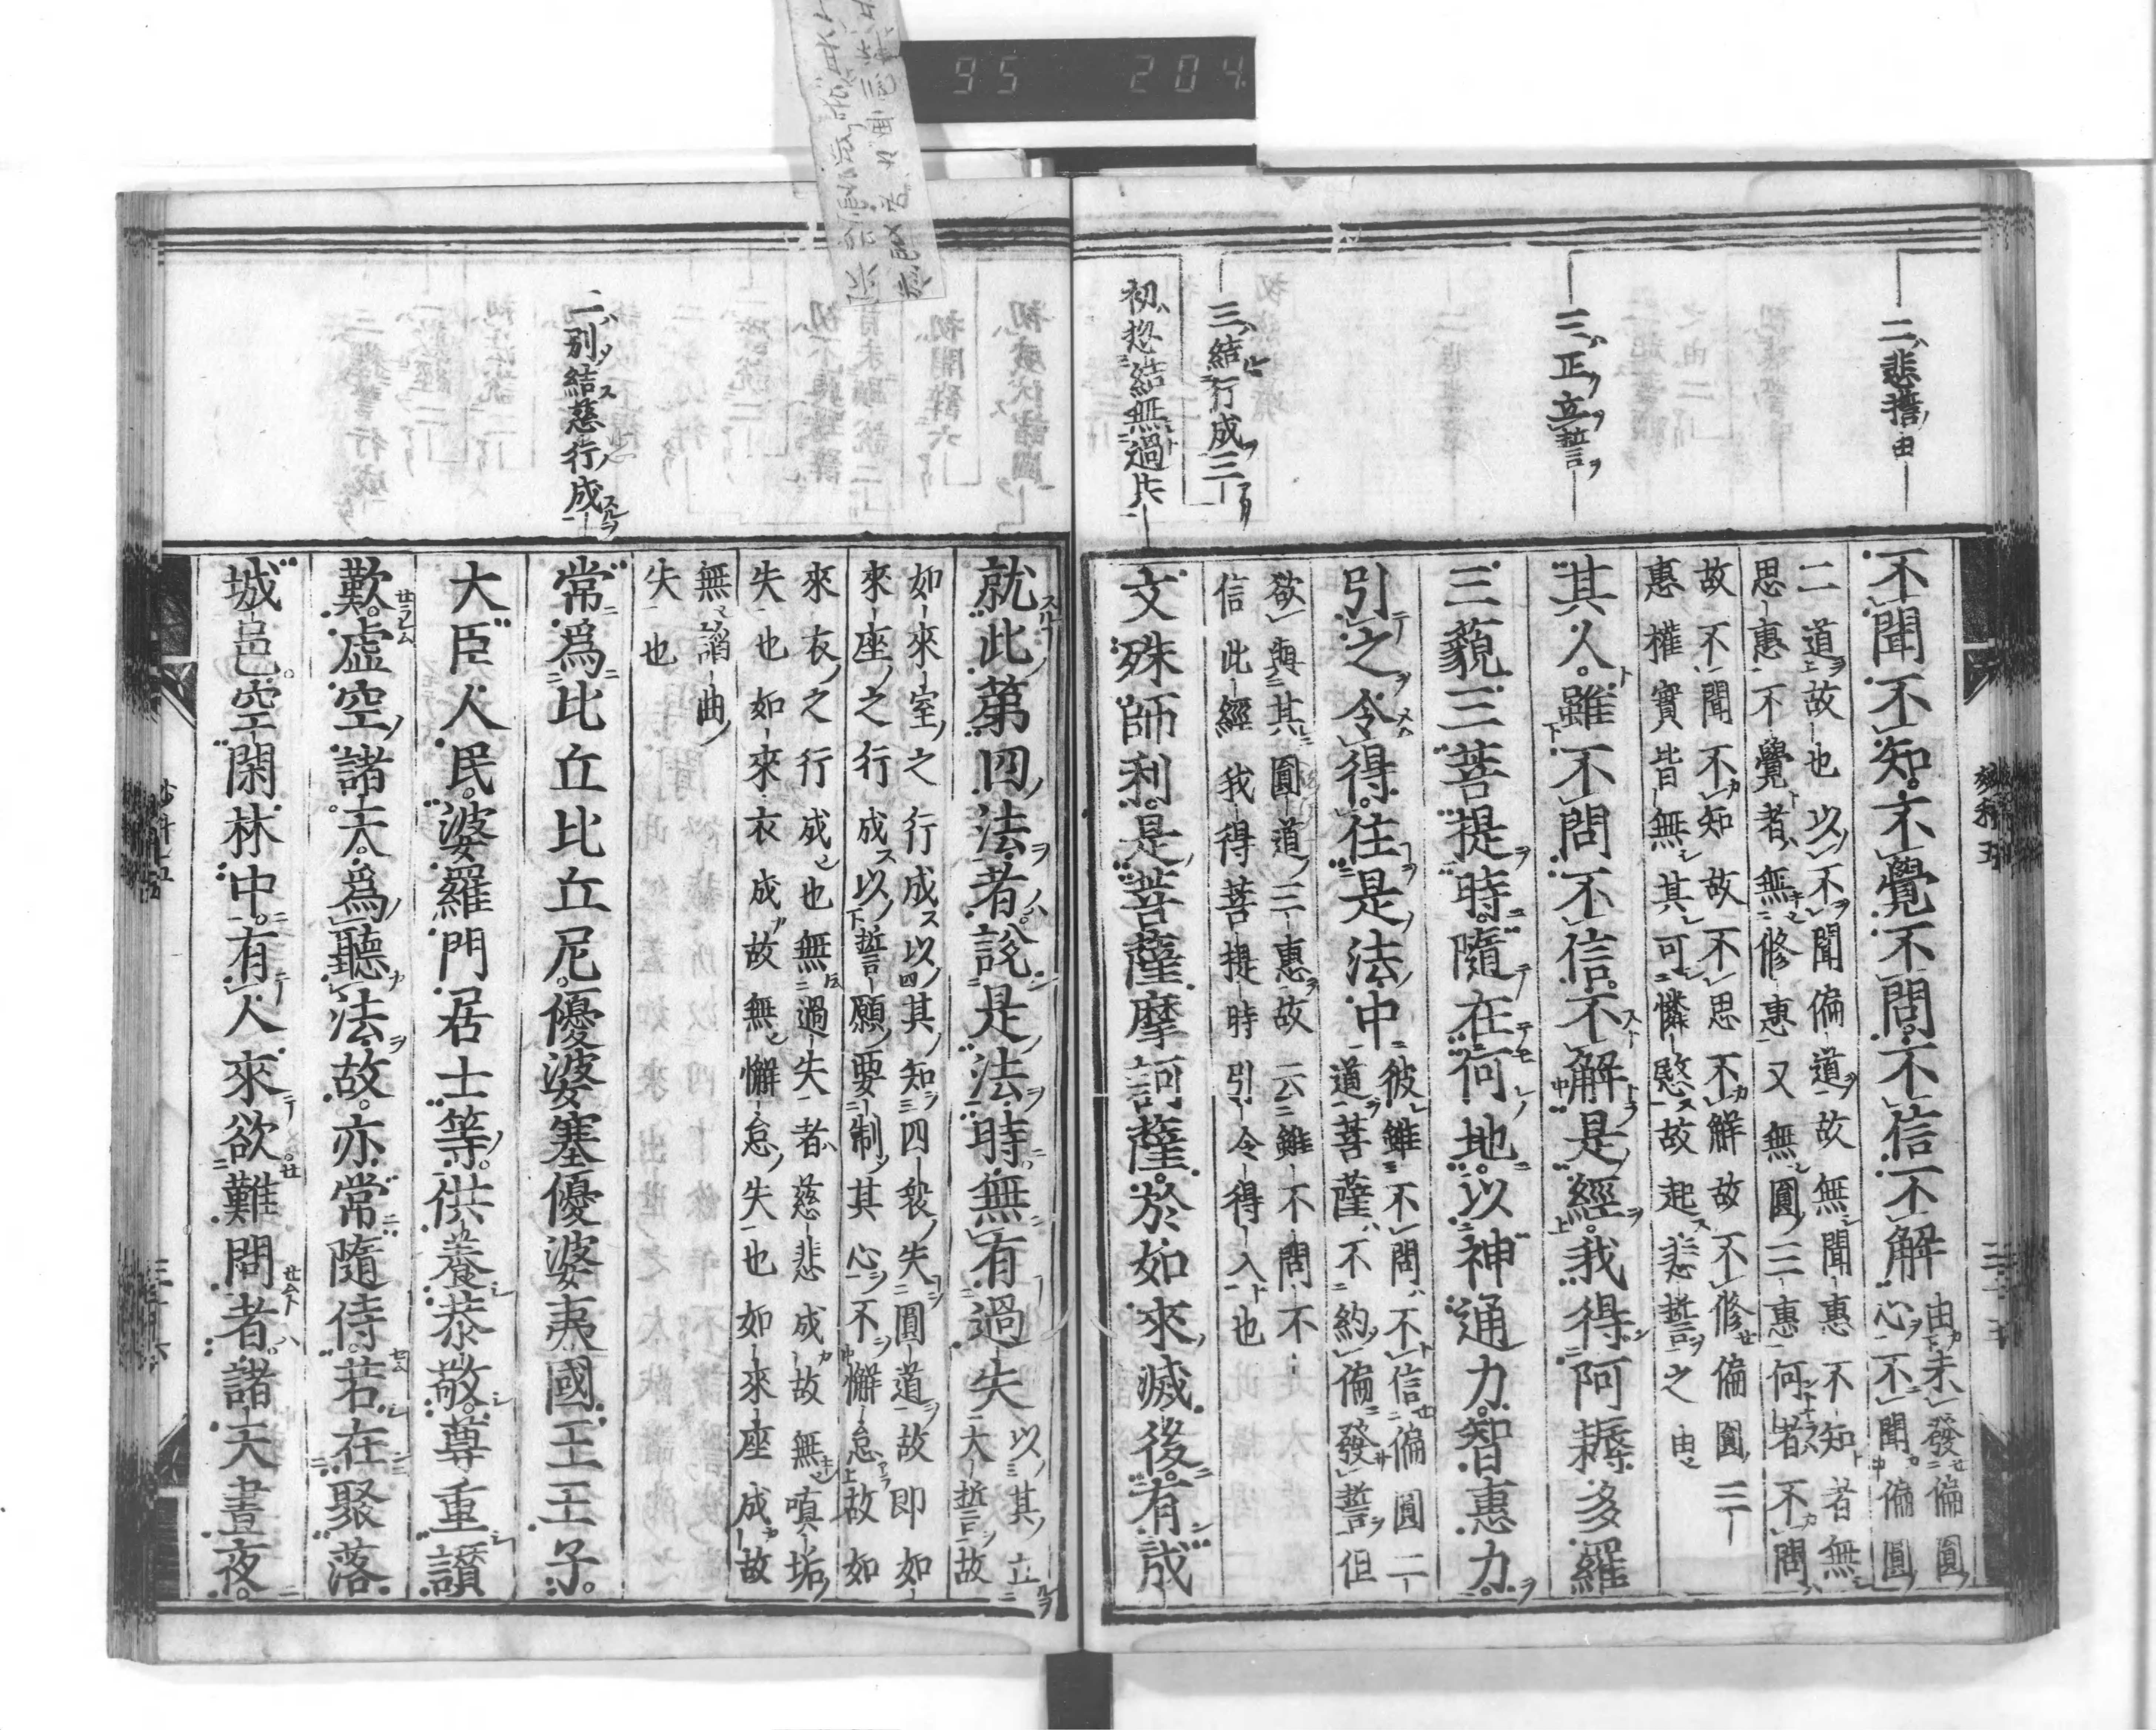 二悲誓由
三正立誓
三結行成三
初惣結無過失
不聞不知不覺不問不信不解
由未發偏圓
心不聞偏圓
二道故也以不聞偏道故無聞惠不知者無
思惠不覺者無修惠又無圓三惠何者不問
故不聞不知故不思不解故不修偏圓三
惠權實皆無其可憐愍故起悲誓之由
其人雖不問不信不解是經我得阿耨多羅
三藐三菩提時隨在何地以神通力智惠力
引之令得住是法中
彼雖不問不信偏圓二
道菩薩不約偏發誓但
欲與其圓道三惠故云雖不問不
信此經我得菩提時引令得入也
文殊師利是菩薩摩訶薩於如來滅後有成
就此第四法者說是法時無有過失
以其立
大誓故
如來室之行成以其知四衆失圓道故即如
來座之行成以誓願要制其心不懈怠故如
來衣之行成也無過失者慈悲成故無嗔垢
失也如來衣成故無懈怠失也如來座成故
無諂曲
失也
二別結慈行成
常爲比丘比丘尼優婆塞優婆夷國王王子
大臣人民婆羅門居士等供養恭敬尊重讃
歎虛空諸天爲聽法故亦常隨侍若在聚落
城邑空閑林中有人來欲難問者諸天晝夜
95 204